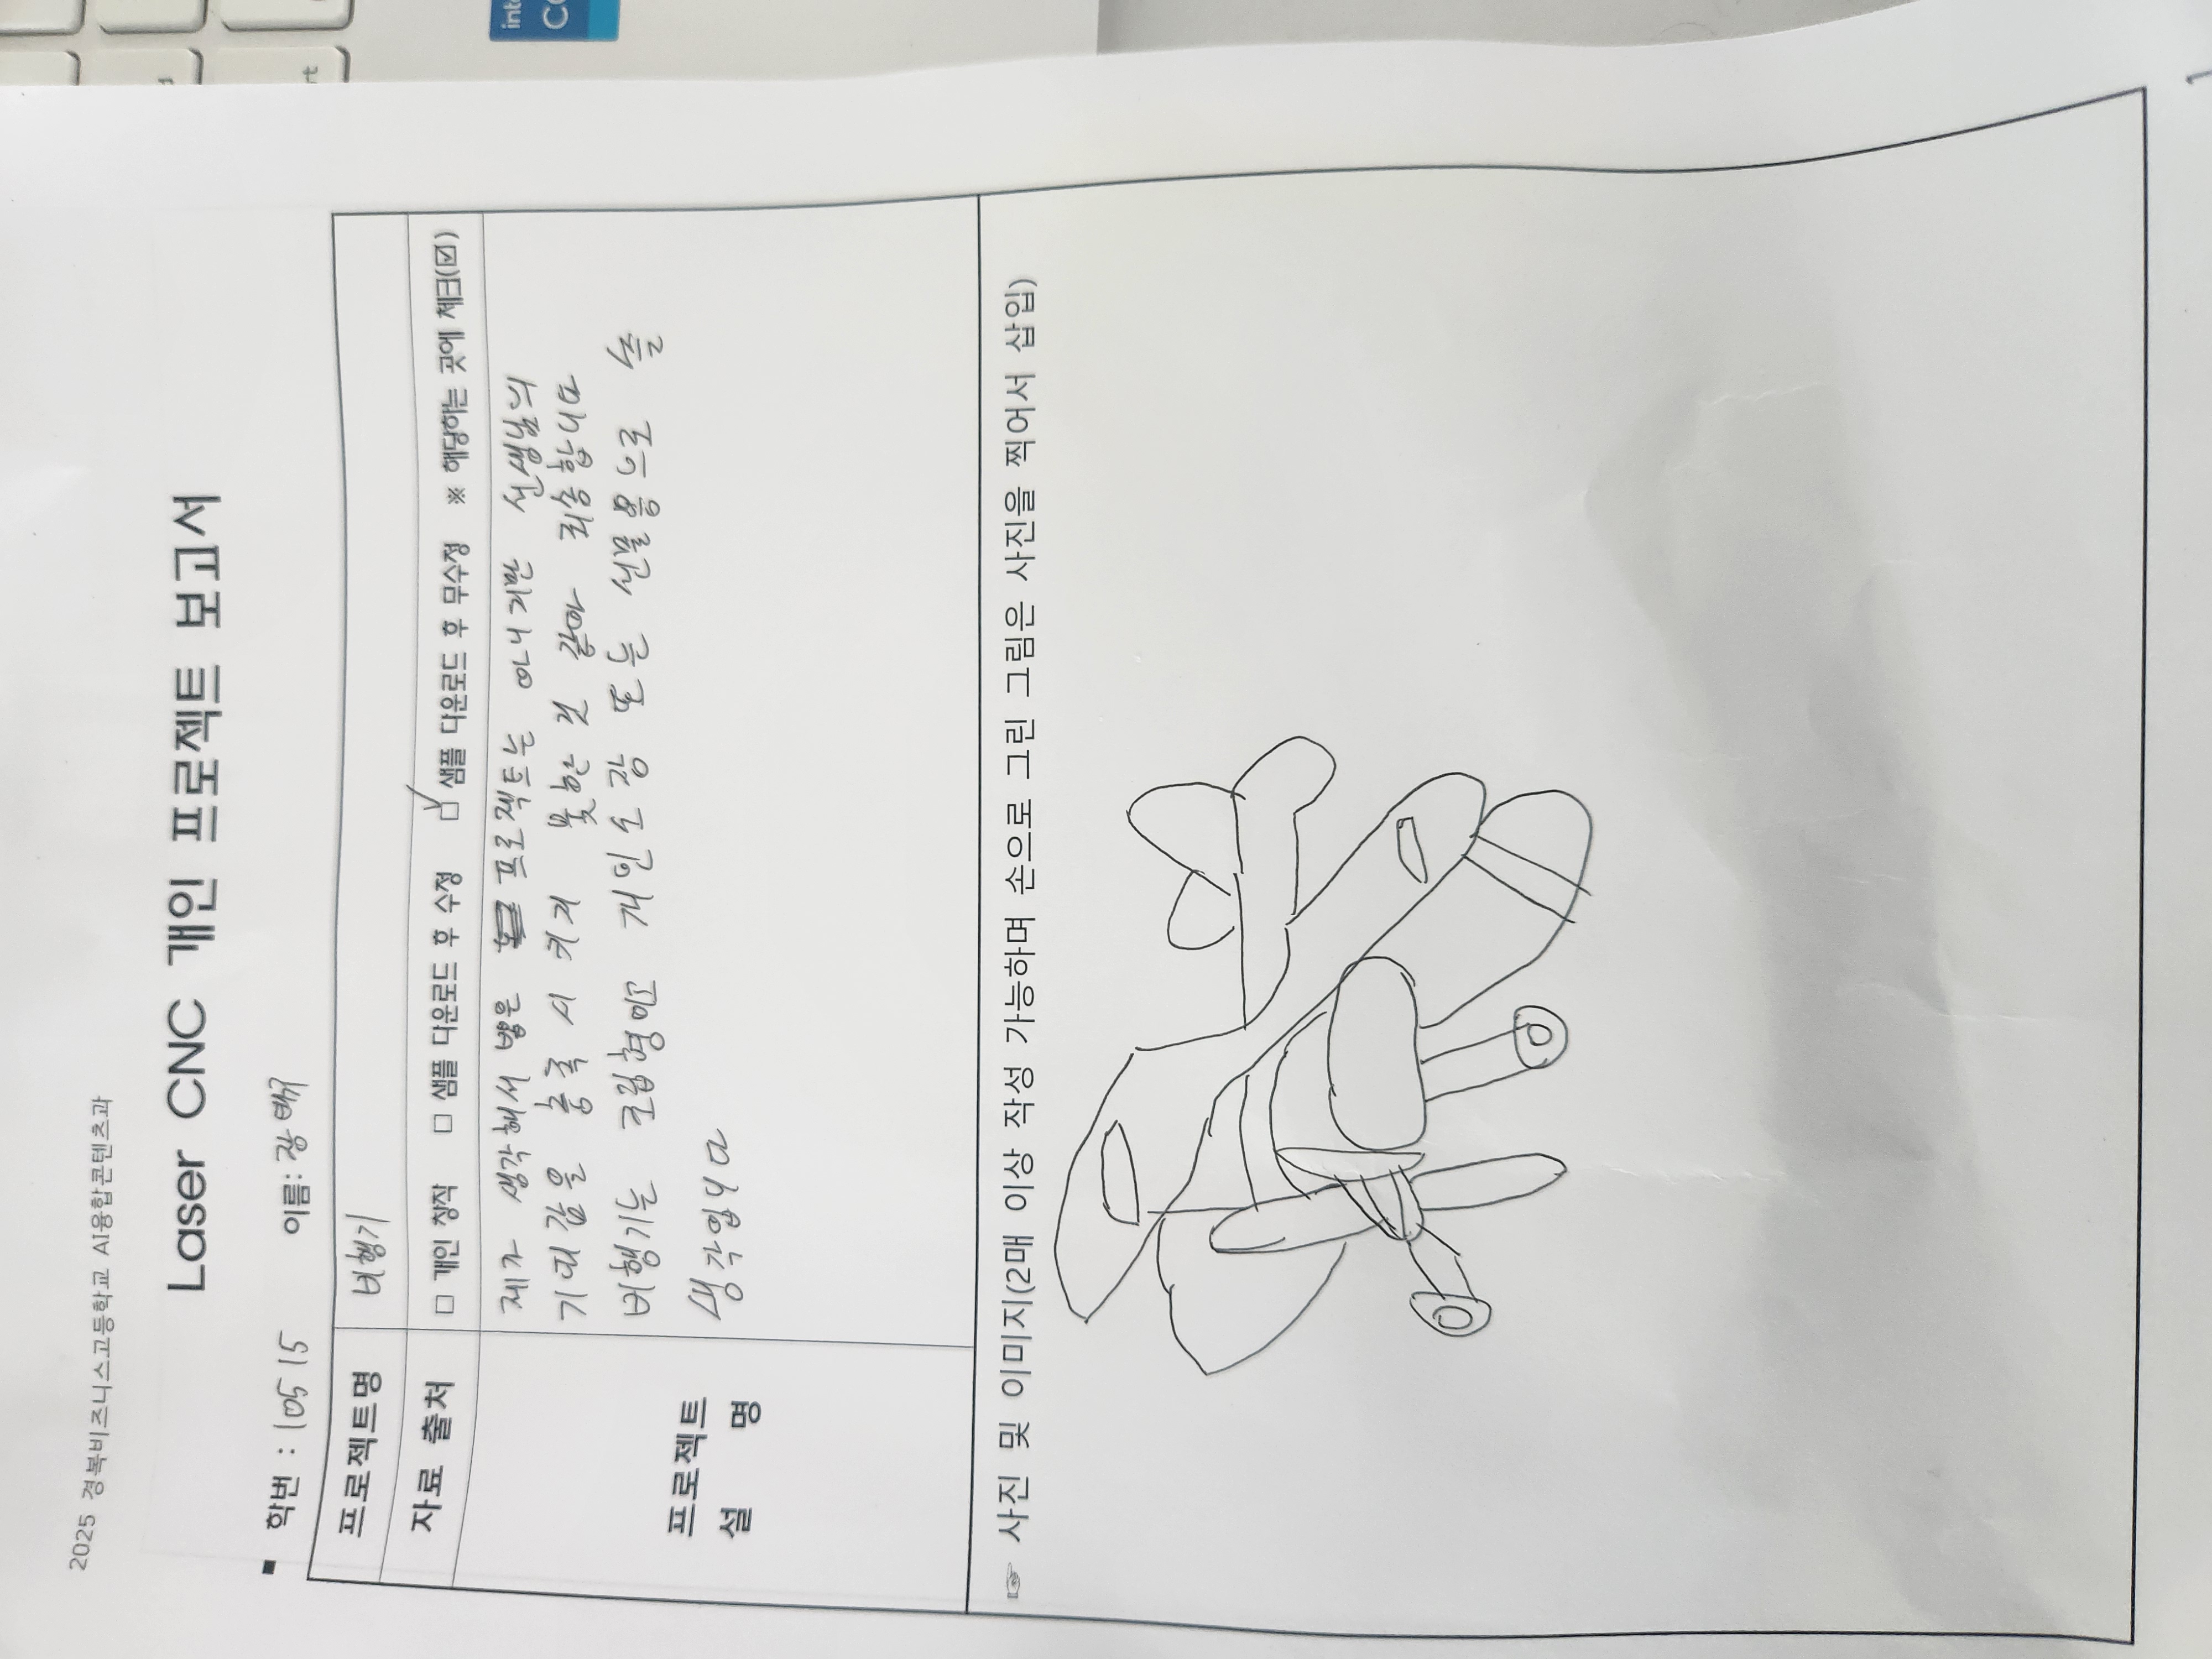 2025 경복비즈니스고등학교 AI융합콘텐츠과
Laser CNC 개인 프로젝트 보고서
▪ 학번 : 10515 이름: 장
프로젝트명 비행기
자료 출처 □ 개인 창작 □ 샘플 다운로드 후 수정 ☑ 샘플 다운로드 후 무수정 ※ 해당하는 곳에 체크(☑)
프로젝트
설 명
제가 생각해서 뽑은 프로젝트는 아니지만 선생님의
기대감을 충족 시키지 못한 것 같아 죄송합니다
비행기는 조립형이고 개인소장 또는 선물용으로 쓸
생각입니다
☞ 사진 및 이미지(2매 이상 작성 가능하며 손으로 그린 그림은 사진을 찍어서 삽입)
1